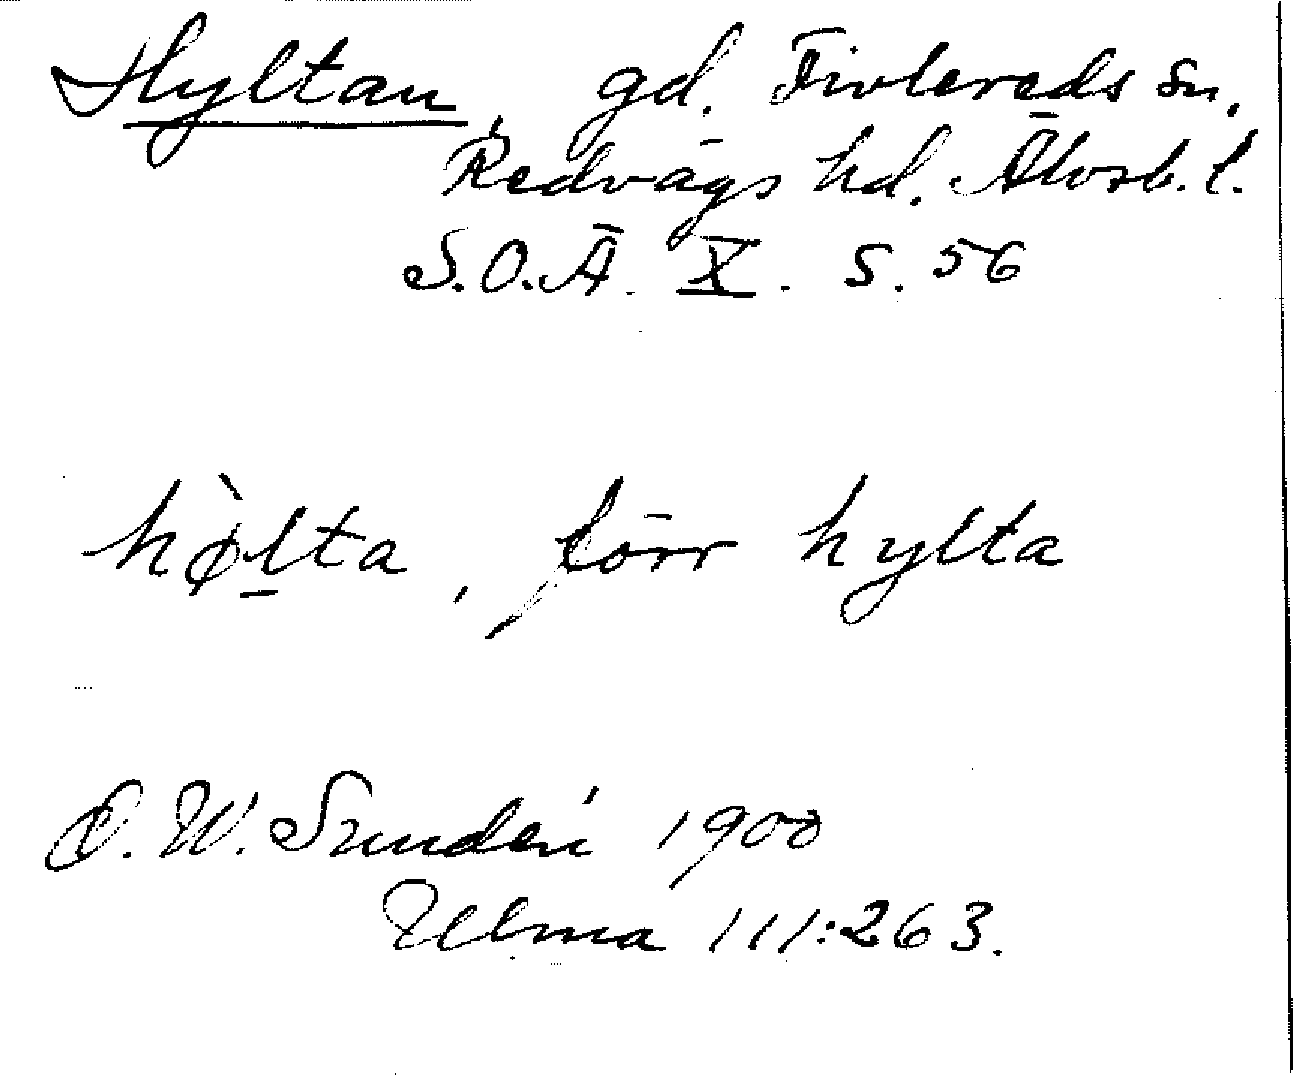 Hyltan, gd. Tivlereds sn.
Redvägs hd. Älvsb. l.
S.O.Ä. X. S. 56
hø̀lta, förr hylta
D. W. Sundén 1900
Ulma 111:263.